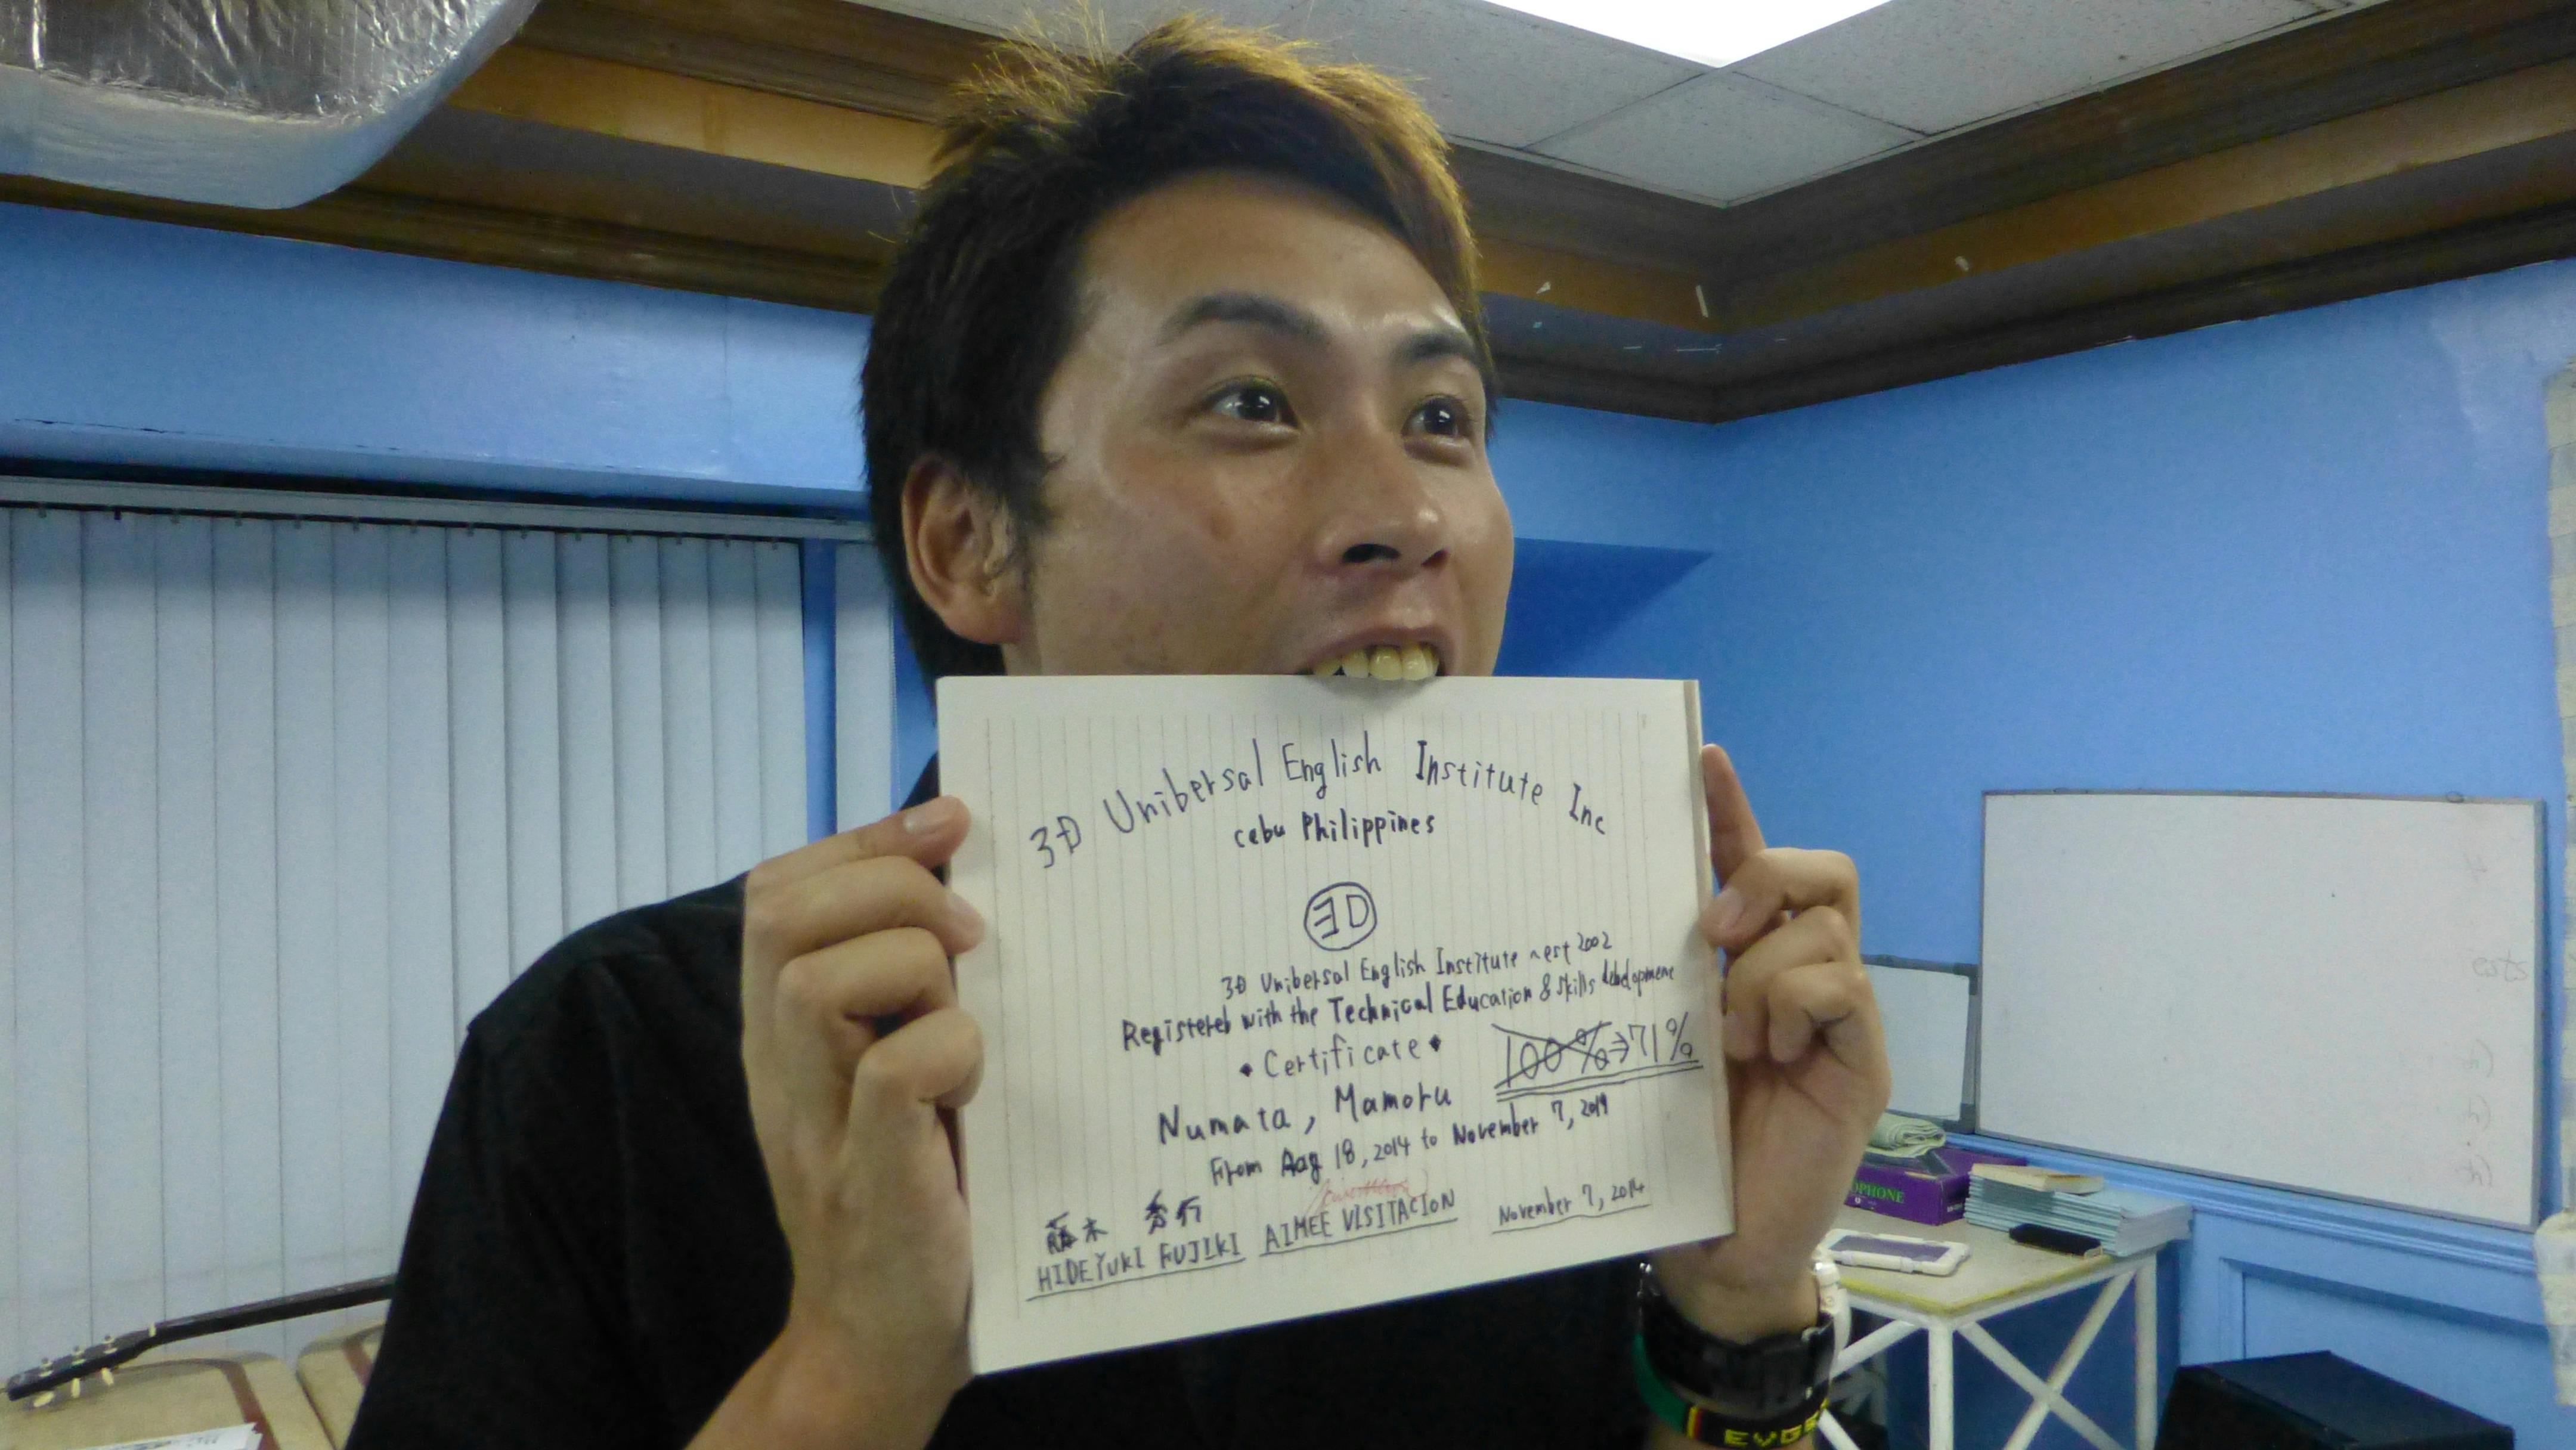 3D Unibersal English Institute Inc
cebu Philippines
3D
3D Unibersal English Institute ~ est 2002
Registered with the Technical Education & skills debelopment
• Certificate •
100% → 71%
Numata, Mamoru
From Aug 18, 2014 to November 7, 2014
藤木 秀行
HIDEYUKI FUJIKI
AIMEE VISITACION
November 7, 2014
OPHONE